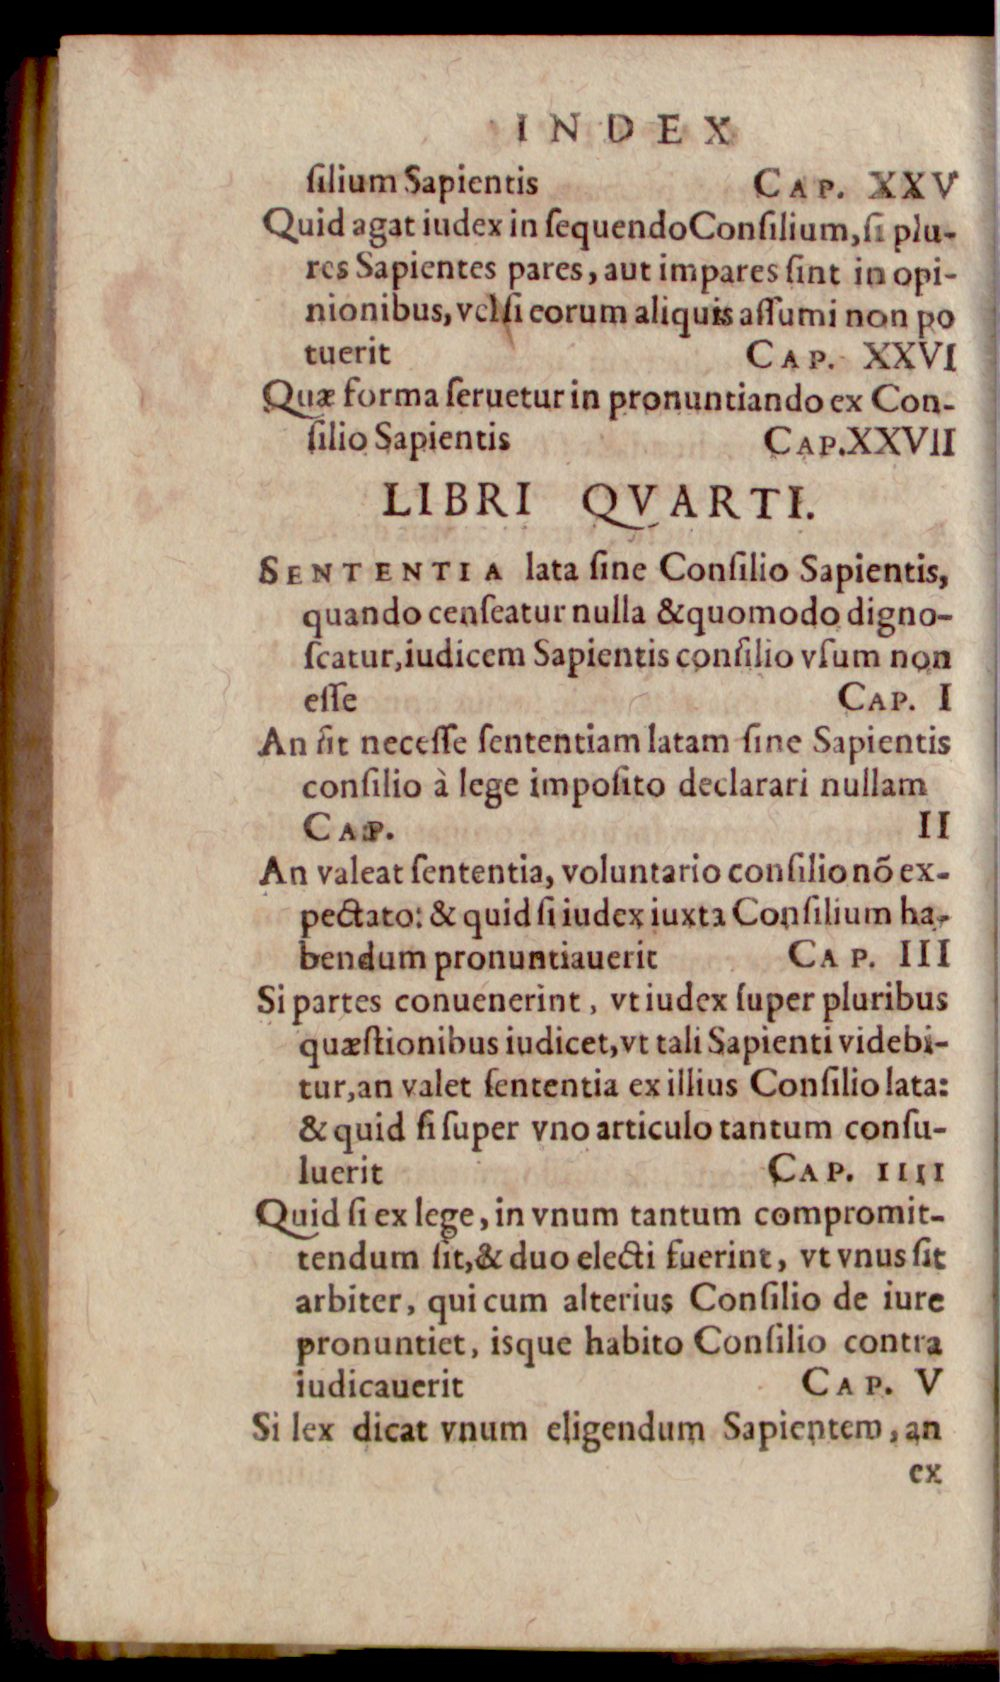 INDEX
ſilium Sapientis CAP. XXV
Quid agat iudex in ſequendo Conſilium, ſi plu-
res Sapientes pares, aut impares ſint in opi-
nionibus, vel ſi eorum aliquis aſſumi non po
tuerit CAP. XXVI
Quæ forma ſeruetur in pronuntiando ex Con-
ſilio Sapientis CAP. XXVII
LIBRI QVARTI.
SENTENTIA lata ſine Conſilio Sapientis,
quando cenſeatur nulla & quomodo digno-
ſcatur, iudicem Sapientis conſilio vſum non
eſſe CAP. I
An ſit neceſſe ſententiam latam ſine Sapientis
conſilio à lege impoſito declarari nullam
CAP. II
An valeat ſententia, voluntario conſilio nõ ex-
pectato: & quid ſi iudex iuxta Conſilium ha-
bendum pronuntiauerit CAP. III
Si partes conuenerint, vt iudex ſuper pluribus
quæſtionibus iudicet, vt tali Sapienti videbi-
tur, an valet ſententia ex illius Conſilio lata:
& quid ſi ſuper vno articulo tantum conſu-
luerit CAP. IIII
Quid ſi ex lege, in vnum tantum compromit-
tendum ſit, & duo electi fuerint, vt vnus ſit
arbiter, qui cum alterius Conſilio de iure
pronuntiet, isque habito Conſilio contra
iudicauerit CAP. V
Si lex dicat vnum eligendum Sapientem, an
ex